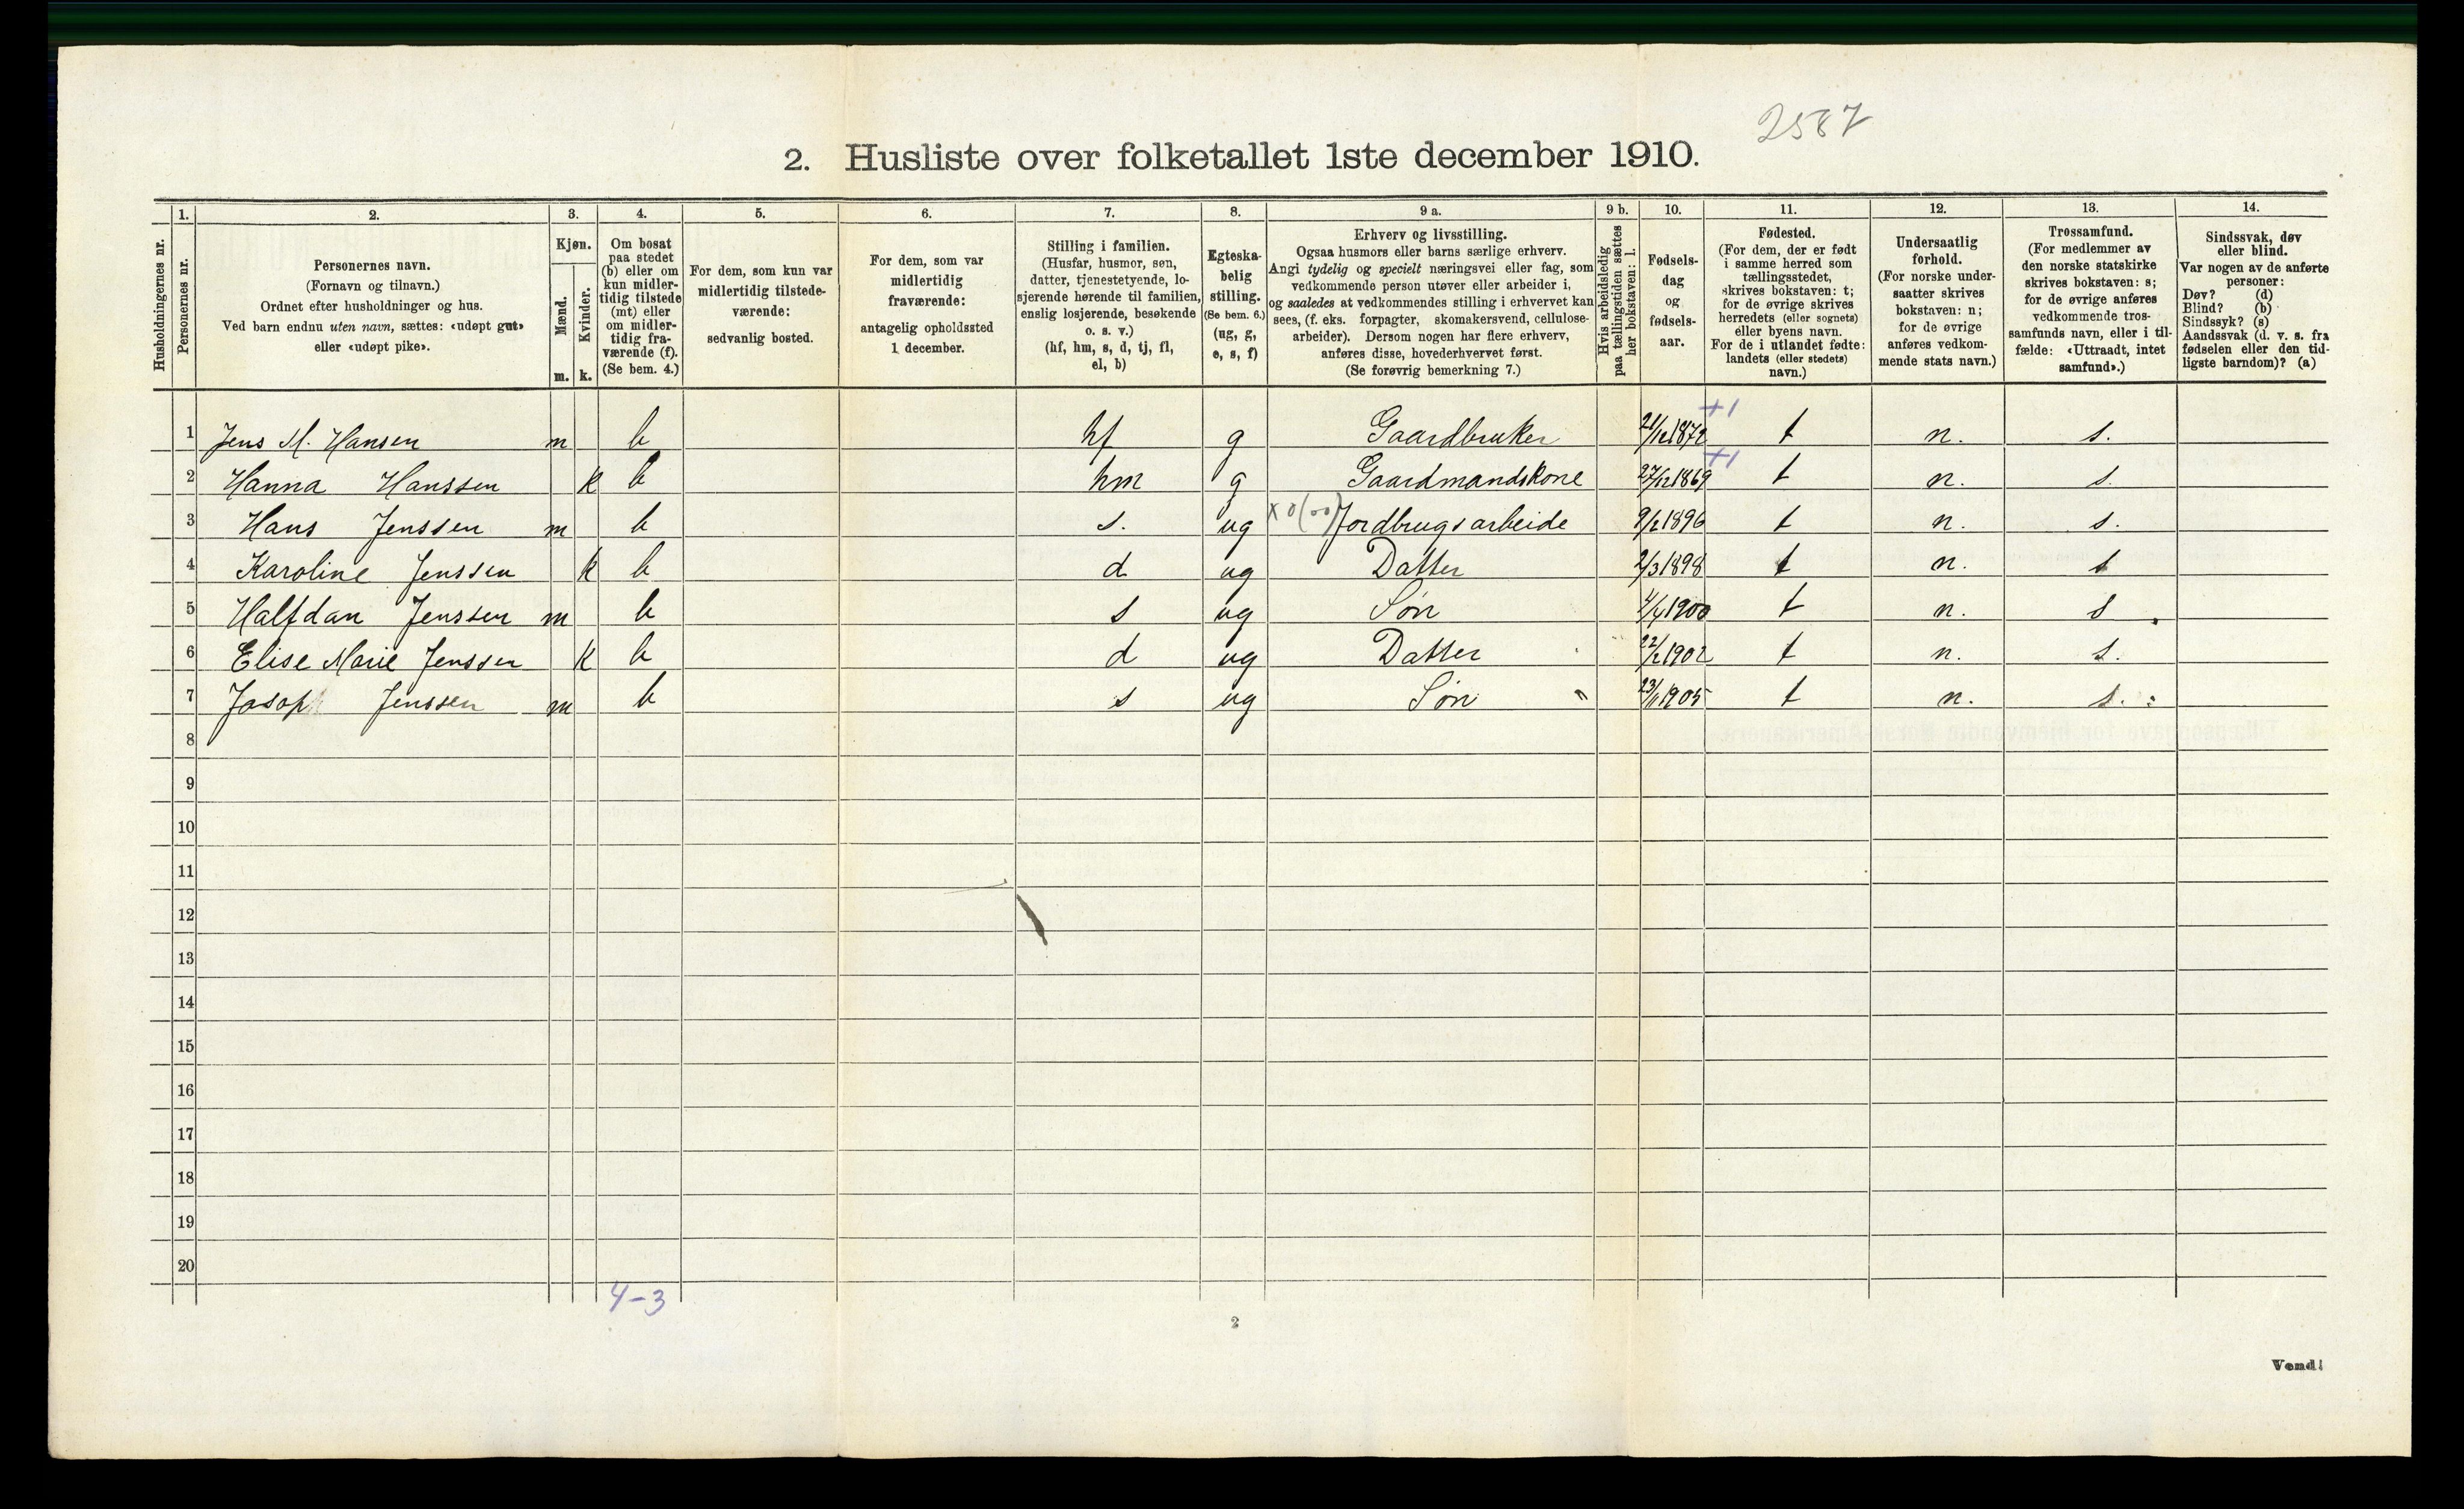 2587
2. Husliste over folketallet 1ste december 1910.
Husholdningernes nr.
1.
Personernes nr.
2.
Personernes navn.
(Fornavn og tilnavn.)
Ordnet efter husholdninger og hus.
Ved barn endnu uten navn, sættes: «udøpt gut»
eller «udøpt pike».
3.
Kjøn.
Mænd.
Kvinder.
m. k.
4.
Om bosat
paa stedet
(b) eller om
kun midler-
tidig tilstede
(mt) eller
om midler-
tidig fra-
værende (f).
(Se bem. 4.)
5.
For dem, som kun var
midlertidig tilstede-
værende:
sedvanlig bosted.
6.
For dem, som var
midlertidig
fraværende:
antagelig opholdssted
1 december.
7.
Stilling i familien.
(Husfar, husmor, søn,
datter, tjenestetyende, lo-
sjerende hørende til familien,
enslig losjerende, besøkende
o. s. v.)
(hf, hm, s, d, tj, fl,
el, b)
8.
Egteska-
belig
stilling.
(Se bem. 6.)
(ug, g,
e, s, f)
9 a.
Erhverv og livsstilling.
Ogsaa husmors eller barns særlige erhverv.
Angi tydelig og specielt næringsvei eller fag, som
vedkommende person utøver eller arbeider i,
og saaledes at vedkommendes stilling i erhvervet kan
sees, (f. eks. forpagter, skomakersvend, cellulose-
arbeider). Dersom nogen har flere erhverv,
anføres disse, hovederhvervet først.
(Se forøvrig bemerkning 7.)
9 b.
Hvis arbeidsledig
paa tællingstiden sættes
her bokstaven: l.
10.
Fødsels-
dag
og
fødsels-
aar.
11.
Fødested.
(For dem, der er født
i samme herred som
tællingsstedet,
skrives bokstaven: t;
for de øvrige skrives
herredets (eller sognets)
eller byens navn.
For de i utlandet fødte:
landets (eller stedets)
navn.)
12.
Undersaatlig
forhold.
(For norske under-
saatter skrives
bokstaven: n;
for de øvrige
anføres vedkom-
mende stats navn.)
13.
Trossamfund.
(For medlemmer av
den norske statskirke
skrives bokstaven: s;
for de øvrige anføres
vedkommende tros-
samfunds navn, eller i til-
fælde: «Uttraadt, intet
samfund».)
14.
Sindssvak, døv
eller blind.
Var nogen av de anførte
personer:
Døv? (d)
Blind? (b)
Sindssyk? (s)
Aandssvak (d. v. s. fra
fødselen eller den tid-
ligste barndom)? (a)
+1
1 Jens M. Hansen m b hf g Gaardbruker 21/12 1872 t n. s.
+1
2 Hanna Hanssen k b hm g Gaardmandskone 27/12 1869 t n. s.
3 Hans Jenssen m b s. ug x 0(00) Jordbrugsarbeide 9/2 1896 t n. s.
4 Karoline Jenssen k b d ug Datter 2/3 1898 t n. s
5 Halfdan Jenssen m b s ug Søn 4/4 1900 t n. s
6 Elise Marie Jenssen k b d ug Datter 22/2 1902 t n. s.
7 Josop Jenssen m b s ug Søn " 23/11 1905 t n. s.
8
9
10
11
12
13
14
15
16
17
18
19
20
4-3
2
Vend!